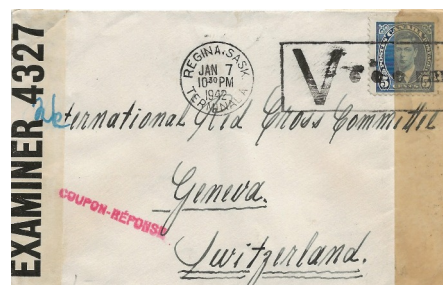 EXAMINER 4327
REGINA, SASK.
JAN 7
10 30 PM
1942
TERMINAL A
V
ternational Red Cross Committee
Geneva.
COUPON-RÉPONSE
Switzerland.